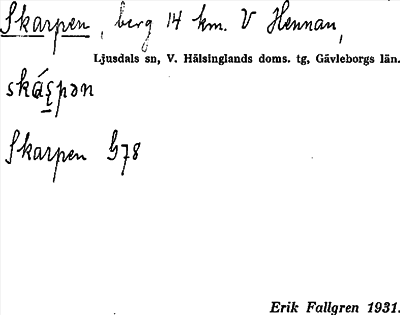 Skarpen, berg 14 km. V Hennan,
Ljusdals sn, V. Hälsinglands doms. tg, Gävleborgs län.
skáʂpən
Skarpen G78
Erik Fallgren 1931.